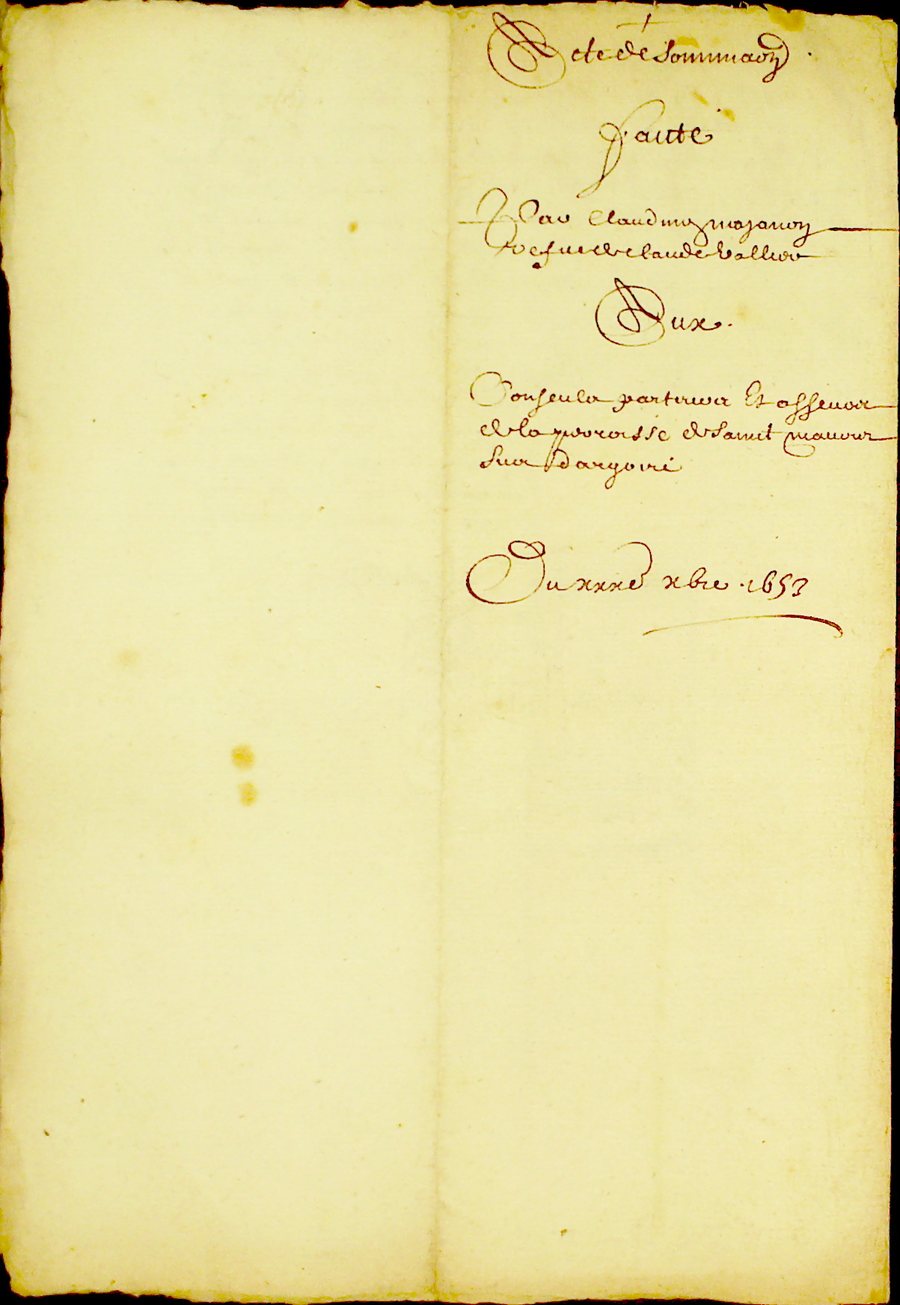 Acte de Sommaon
faicte
Par Claudine
vefue de claude vallier
Aux
Conseulz parteurs Et asseeurs
de la parroisse de sainct maurice
sur dargoire
Du xxxe xbre 1653